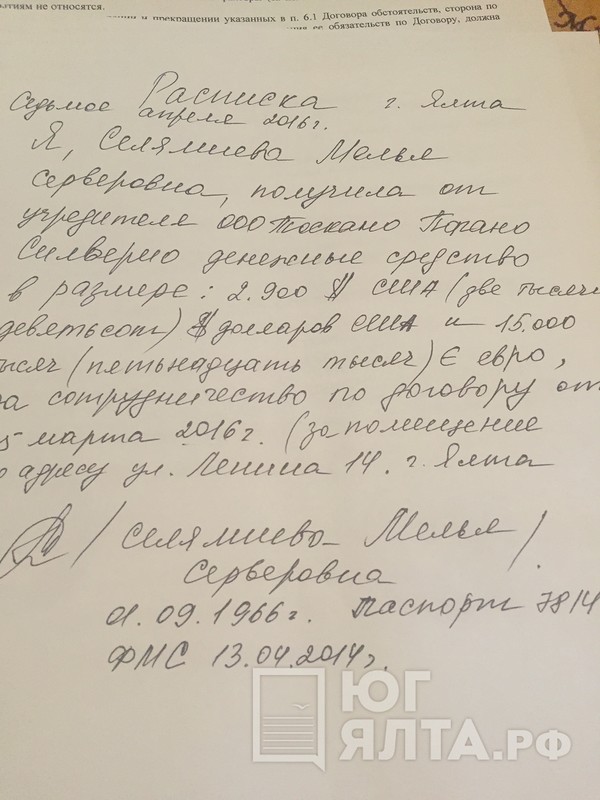 ытиям не относятся.
и прекращении указанных в п. 6.1 Договора обстоятельств, сторона по
обязательств по Договору, должна
Расписка г. Ялта
Седьмое апреля 2016г.
Я, Селямиева Мелья
Серверовна, получила от
учредителя ООО Тоскано
Силверио денежные средство
в размере: 2.900 $ США (две тысячи
девятьсот) $ долларов США и 15.000
тысяч (пятьнадцать тысяч) € евро,
за сотрудничество по договору от
5 марта 2016г. (за помещение
о адресу ул. Ленина 14. г. Ялта
/ Селямиева Мелья /
Серверовна
01.09.1966г. Паспорт 3814
ФМС 13.04.2014г.
ЮГ
ЯЛТА.РФ